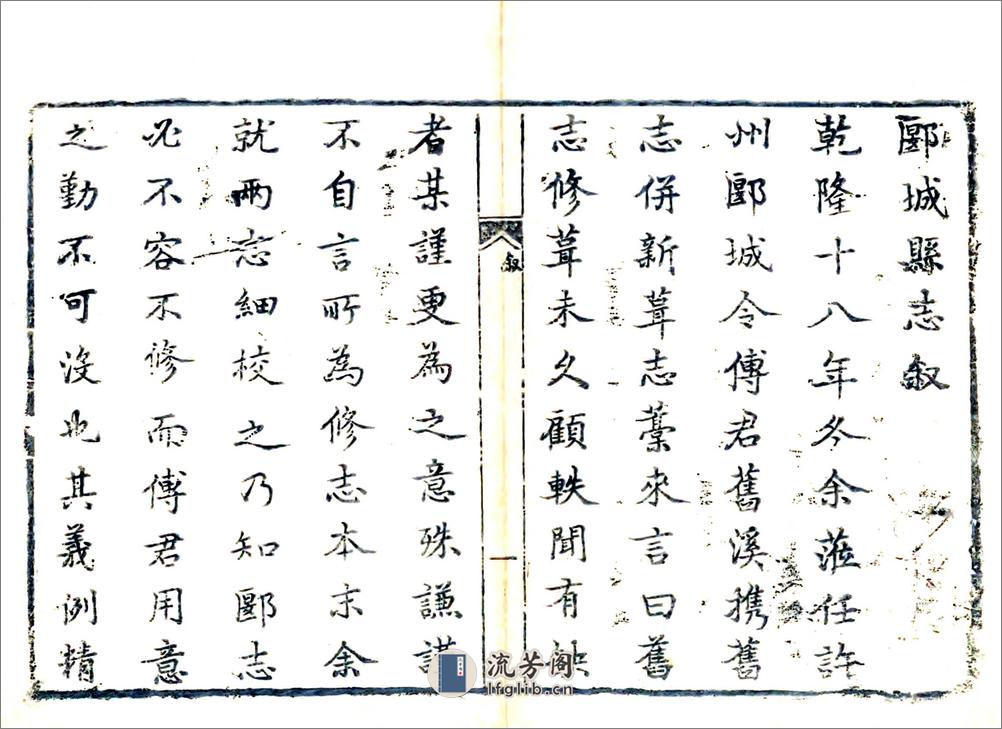 郾城縣志叙
乾隆十八年冬余蒞任許
州郾城令傅君舊溪携舊
志併新葺志藳來言曰舊
志修葺未久顧軼聞有
叙
一
者某謹更為之意殊謙
不自言所為修志本末余
就兩志細校之乃知郾志
必不容不修而傅君用意
之勤不可沒也其義例精
流芳阁
lfglib.cn